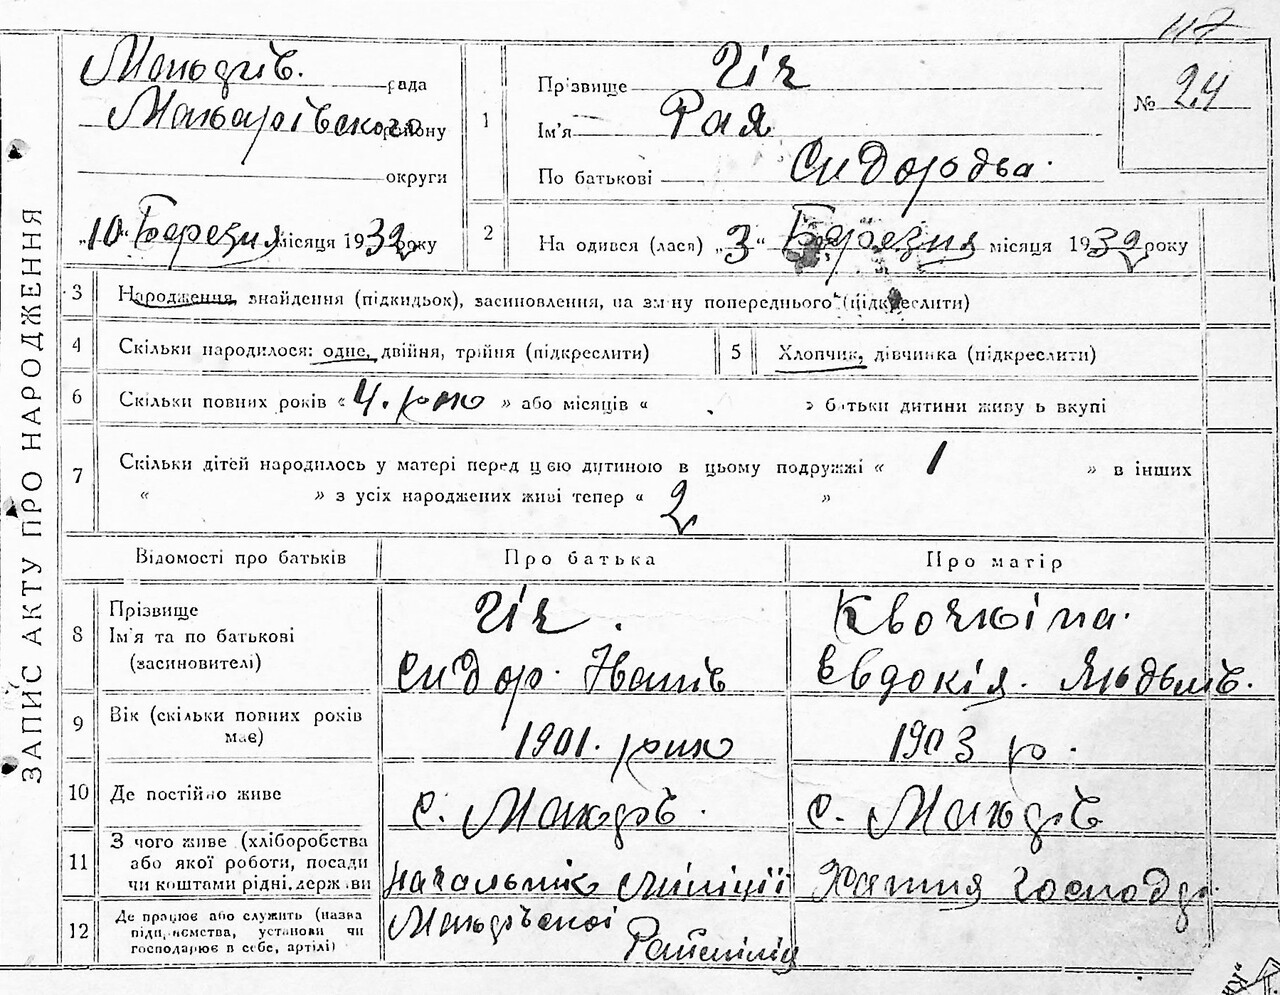 118
ЗАПИС АКТУ ПРО НАРОДЖЕННЯ
Макарів. рада
Макарівського району
округи
„10“ Березня місяця 1932 року
1
Прізвище Гіч
Ім'я Рая
По батькові Сидоровна.
№ 24
2
На одився (лася) „3“ Березня місяця 1932 року
3 Народження, знайдення (підкидьок), засиновлення, на зміну попереднього (підкреслити)
4 Скільки народилося: одне, двійня, трійня (підкреслити)
5 Хлопчик, дівчинка (підкреслити)
6 Скільки повних років « 4. рик » або місяців « » батьки дитини живуть вкупі
7 Скільки дітей народилось у матері перед цією дитиною в цьому подружжі « 1 » в інших
« » з усіх народжених живі тепер « 2 »
Відомості про батьків Про батька Про матір
8 Прізвище
Ім'я та по батькові
(засиновителі)
Гіч.
Сидор. Іванів
Євдокія.
9 Вік (скільки повних років
має)
1901. рик
1903 р.
10 Де постійно живе
с. Макарів.
с. Макарів
11 З чого живе (хліборобства
або якої роботи, посади
чи коштами рідні, держави
начальник міліції
Хатня господар
12 Де працює або служить (назва
підприємства, установи чи
господарює в себе, артілі)
Макарівської
Райміліц